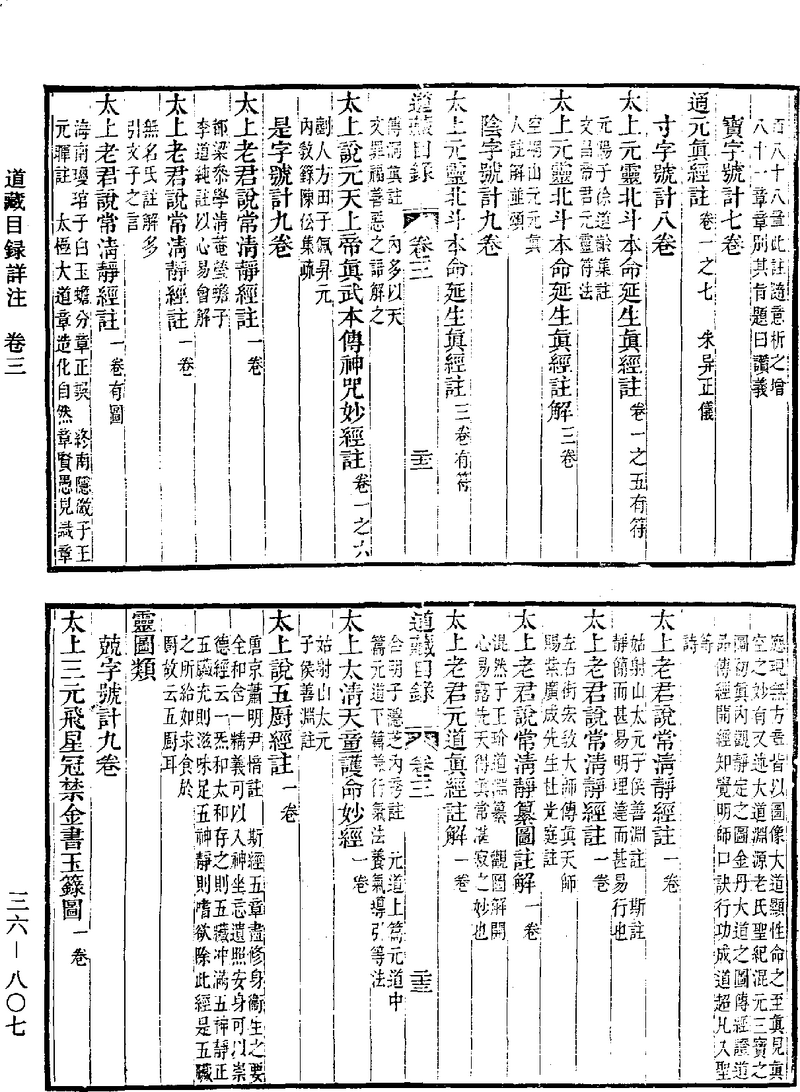 百八十八章此註隨意析之增
八十一章章別其旨題曰讚義
寶字號計七卷
通元眞經註 卷一之七 朱弁正儀
寸字號計八卷
太上元靈北斗本命延生眞經註 卷一之五有符
元陽子徐道齡集註
文昌帝君元靈符法
太上元靈北斗本命延生眞經註解 三卷
空洞山元元眞
人註解並頌
陰字號計九卷
太上元靈北斗本命延生眞經註 三卷有符
道藏目錄 卷三
傅洞眞註 內多以天
文罪福善惡之語解之
太上說元天上帝眞武本傳神咒妙經註 卷一之六
劍人方田子佩昇元
內敎籙陳伀集疏
是字號計九卷
太上老君說常淸靜經註 一卷
都梁叅學淸菴瑩蟾子
李道純註以心易會解
太上老君說常淸靜經註 一卷
無名氏註解多
引文子之言
太上老君說常淸靜經註 一卷有圖
海南瓊琯子白玉蟾分章正誤 終南隱微子王
元暉註 太極大道章造化自然章賢愚見識章
應現無方章皆以圖像大道顯性命之至眞見眞
空之妙有又述大道淵源老氏聖紀混元三寶之
圖初眞內觀靜定之圖金丹大道之圖傳經證道
品傳經開經知覺明師口訣行功成道超凡入聖
等
詩
太上老君說常淸靜經註 一卷
姑射山太元子侯善淵註 斯註
靜簡而甚易明理達而甚易行也
太上老君說常淸靜經註 一卷
左右街宏敎大師傳眞天師
賜紫廣成先生杜光庭註
太上老君說常淸靜纂圖註解 一卷
混然子王玠道淵纂 觀圖解開
心易露先天得眞常湛寂之妙也
太上老君元道眞經註解 一卷
道藏目錄 卷三
合明子隱芝內秀註 元道上篇元道中
篇元道下篇兼行氣法養氣導引等法
太上太淸天童護命妙經 一卷
姑射山太元
子侯善淵註
太上說五厨經註 一卷
唐京蕭明尹愔註 斯經五章盡修身衞生之要
全和含一精義可以入神坐忘遺照安身可以崇
德經云一炁和太和存之則五藏冲滿五神靜正
五臟充則滋味足五神靜則嗜欲除此經是五臟
之所給如求食於
厨故云五厨耳
靈圖類
競字號計九卷
太上三元飛星冠禁金書玉籙圖 一卷
道藏目録詳注 卷三
三六—八〇七